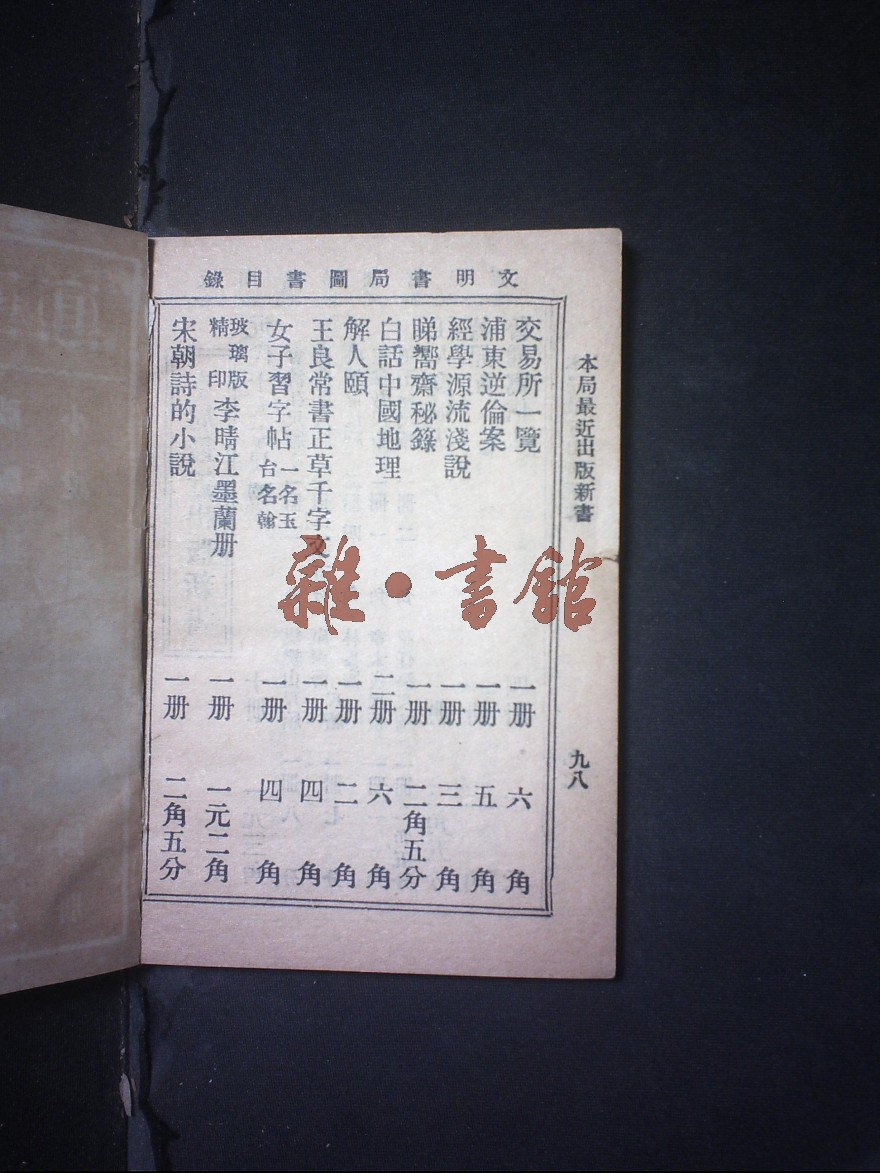 文明書局圖書目錄
本局最近出版新書
九八
交易所一覽 一册 六角
浦東逆倫案 一册 五角
經學源流淺說 一册 三角
睇嚮齋秘錄 一册 二角五分
白話中國地理 二册 六角
解人頤 一册 二角
王良常書正草千字文 一册 四角
女子習字帖 一名玉台名翰 一册 四角
玻璃版精印 李晴江墨蘭册 一册 一元二角
宋朝詩的小說 一册 二角五分
雜·書館